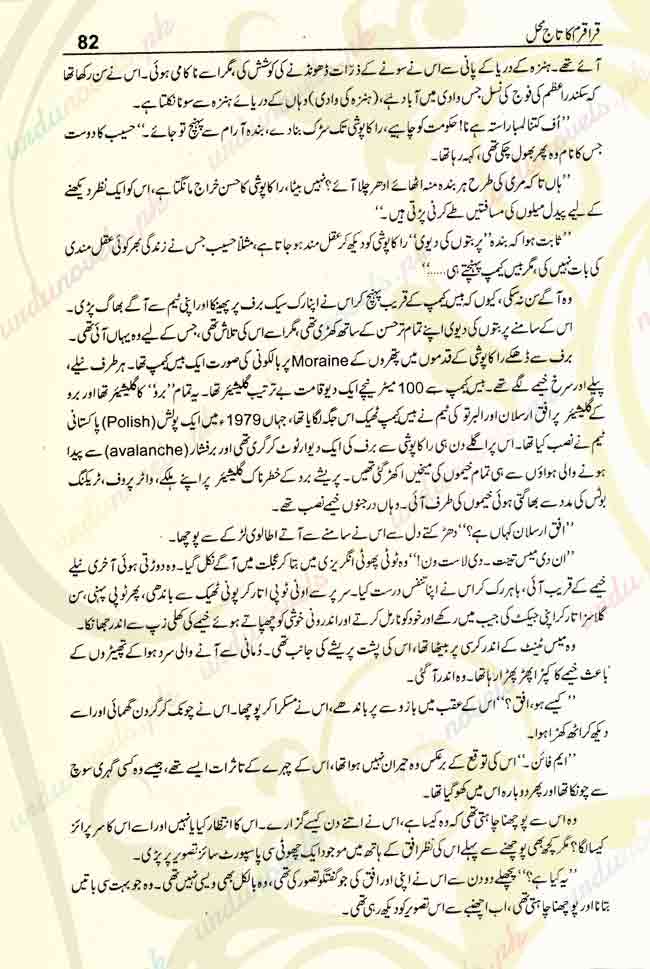 82
قراقرم کا تاج محل
آئے تھے۔ ہنزہ کے دریا کے پانی سے اس نے سونے کے ذرّات ڈھونڈنے کی کوشش کی، مگر اسے ناکامی ہوئی۔ اس نے سن رکھا تھا
کہ سکندر اعظم کی فوج کی نسل جس وادی میں آباد ہے، (ہنزہ کی وادی) وہاں کے دریائے ہنزہ سے سونا نکلتا ہے۔
"اُف کتنا لمبا راستہ ہے نا! حکومت کو چاہیے، راکاپوشی تک سڑک بنا دے، بندہ آرام سے پہنچ تو جائے۔" حسیب کا دوست
جس کا نام وہ پھر بھول چکی تھی، کہہ رہا تھا۔
"ہاں تاکہ مری کی طرح ہر بندہ منہ اٹھائے ادھر چلا آئے؟ نہیں بیٹا، راکاپوشی کا حسن خراج مانگتا ہے، اس کو ایک نظر دیکھنے
کے لیے پیدل میلوں کی مسافتیں طے کرنی پڑتی ہیں۔"
"ثابت ہوا کہ بندہ "پربتوں کی دیوی" راکاپوشی کو دیکھ کر عقل مند ہو جاتا ہے، مثلاً حسیب جس نے زندگی بھر کوئی عقل مندی
کی بات نہیں کی، مگر بیس کیمپ پہنچتے ہی....."
وہ آگے سن نہ سکی، کیوں کہ بیس کیمپ کے قریب پہنچ کر اس نے اپنا رک سیک برف پر پھینکا اور اپنی ٹیم سے آگے بھاگ پڑی۔
اس کے سامنے پربتوں کی دیوی اپنے تمام تر حسن کے ساتھ کھڑی تھی، مگر اسے اس کی تلاش تھی، جس کے لیے وہ یہاں آئی تھی۔
برف سے ڈھکے راکاپوشی کے قدموں میں پتھروں کے Moraine پر بالکونی کی صورت ایک بیس کیمپ تھا۔ ہر طرف نیلے،
پیلے اور سرخ خیمے لگے تھے۔ بیس کیمپ سے 100 میٹر نیچے ایک دیو قامت بے ترتیب گلیشیئر تھا۔ یہ تمام "برو" کا گلیشیئر تھا اور برو
کے گلیشیئر پر افق ارسلان اور البرتو کی ٹیم نے بیس کیمپ ٹھیک اس جگہ لگایا تھا، جہاں 1979ء میں ایک پولش (Polish) پاکستانی
ٹیم نے نصب کیا تھا۔ اس پر اگلے دن ہی راکاپوشی سے برف کی ایک دیوار ٹوٹ کر گری تھی اور برفشار (avalanche) سے پیدا
ہونے والی ہواؤں سے ہی تمام خیموں کی میخیں اکھڑ گئی تھیں۔ پریشے برد کے خطرناک گلیشیئر پر اپنے ہلکے، واٹر پروف، ٹریکنگ
بوٹس کی مدد سے بھاگتی ہوئی خیموں کی طرف آئی۔ وہاں درجنوں خیمے نصب تھے۔
"افق ارسلان کہاں ہے؟" دھڑکتے دل سے اس نے سامنے سے آتے اطالوی لڑکے سے پوچھا۔
"ان دی میس تینت۔ دی لاست ون!" وہ ٹوٹی پھوٹی انگریزی میں بتا کر عجلت میں آگے نکل گیا۔ وہ دوڑتی ہوئی آخری نیلے
خیمے کے قریب آئی، باہر رک کر اس نے اپنا تنفس درست کیا۔ سر پر سے اونی ٹوپی اتار کر پونی ٹھیک سے باندھی، پھر ٹوپی پہنی، سن
گلاسز اتار کر اپنی جیکٹ کی جیب میں رکھے اور خود کو نارمل کرتے اور اندرونی خوشی کو چھپاتے ہوئے خیمے کی کھلی زپ سے اندر جھانکا۔
وہ میس ٹینٹ کے اندر کرسی پر بیٹھا تھا، اس کی پشت پریشے کی جانب تھی۔ دُمانی سے آنے والی سرد ہوا کے تھپیڑوں کے
باعث خیمے کا کپڑا پھڑپھڑا رہا تھا۔ وہ اندر آ گئی۔
"کیسے ہو، افق؟" اس کے عقب میں بازو سے پر باندھے، اس نے مسکرا کر پوچھا۔ اس نے چونک کر گردن گھمائی اور اسے
دیکھ کر اٹھ کھڑا ہوا۔
"ایم فائن۔" اس کی توقع کے برعکس وہ حیران نہیں ہوا تھا، اس کے چہرے کے تاثرات ایسے تھے، جیسے وہ کسی گہری سوچ
سے چونکا تھا اور پھر دوبارہ اس میں کھو گیا تھا۔
وہ اس سے پوچھنا چاہتی تھی کہ وہ کیسا ہے، اس نے اتنے دن کیسے گزارے۔ اس کا انتظار کیا یا نہیں اور اسے اس کا سرپرائز
کیسا لگا؟ مگر کچھ بھی پوچھنے سے پہلے اس کی نظر افق کے ہاتھ میں موجود ایک چھوٹی سی پاسپورٹ سائز تصویر پر پڑی۔
"یہ کیا ہے؟" پچھلے دو دن سے اس نے اپنی اور افق کی جو گفتگو تصور کی تھی، وہ بالکل بھی ویسی نہیں تھی۔ وہ جو بہت سی باتیں
بتانا اور پوچھنا چاہتی تھی، اب اچنبھے سے اس تصویر کو دیکھ رہی تھی۔